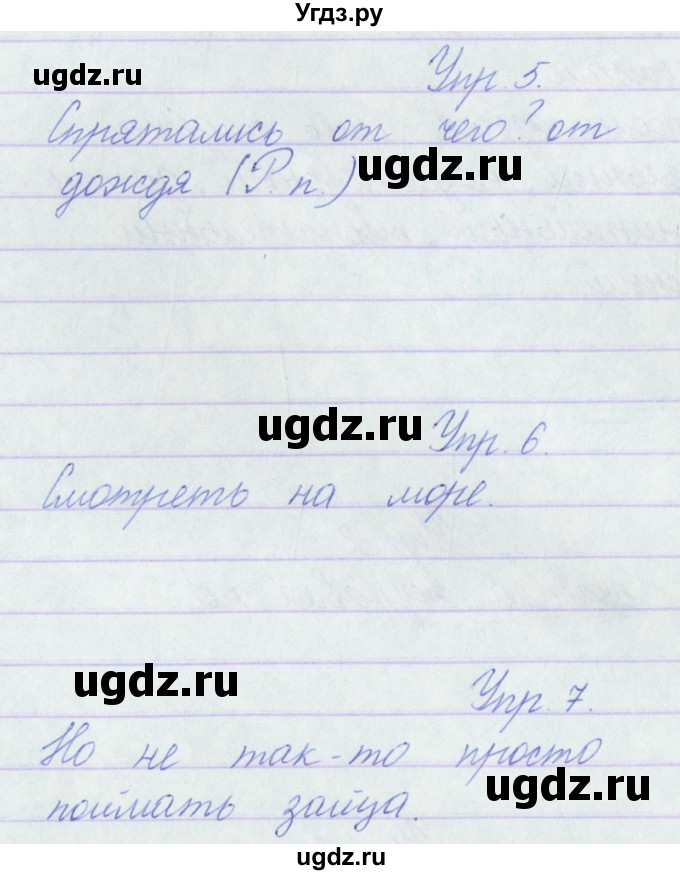 Угдз.ру
ugdz.ru
Упр. 5.
Спрятались от чего? от
дождя (Р. п.)
ugdz.ru
ugdz.ru
Упр. 6.
Смотреть на море.
ugdz.ru
Упр. 7.
Но не так-то просто
ugdz.ru
поймать зайца.
ugdz.ru